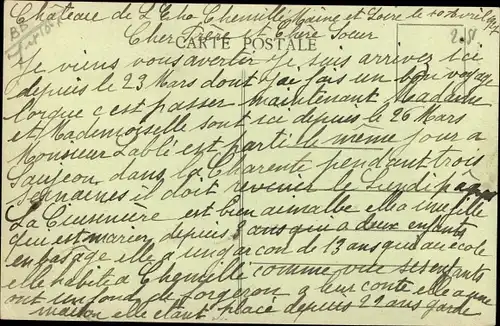 Château de L'Echo Chemillé Maine et Loire le 10 avril
Cher Frère et Chère Soeur
CARTE POSTALE
Je viens vous avertir je suis arrivez ici
depuis le 23 Mars dont j'ai fais un bon voyage
lorque c'est passer maintenant Madame
et Mademoiselle sont ici depuis le 26 Mars
Monsieur Lablé est parti le même jour a
Saujeon dans la Charente pendant trois
semaines il doit revenir le Lundi pâques
La Cuisinière est bien aimable elle a une fille
qui est marier depuis 3 ans qui a deux enfants
en bas age elle a un garcon de 13 ans qui au école
elle habite a Chemillé comme ses enfants
ont un fond de forgeron a leur conte elle a une
maison elle étant placé depuis 22 ans garde